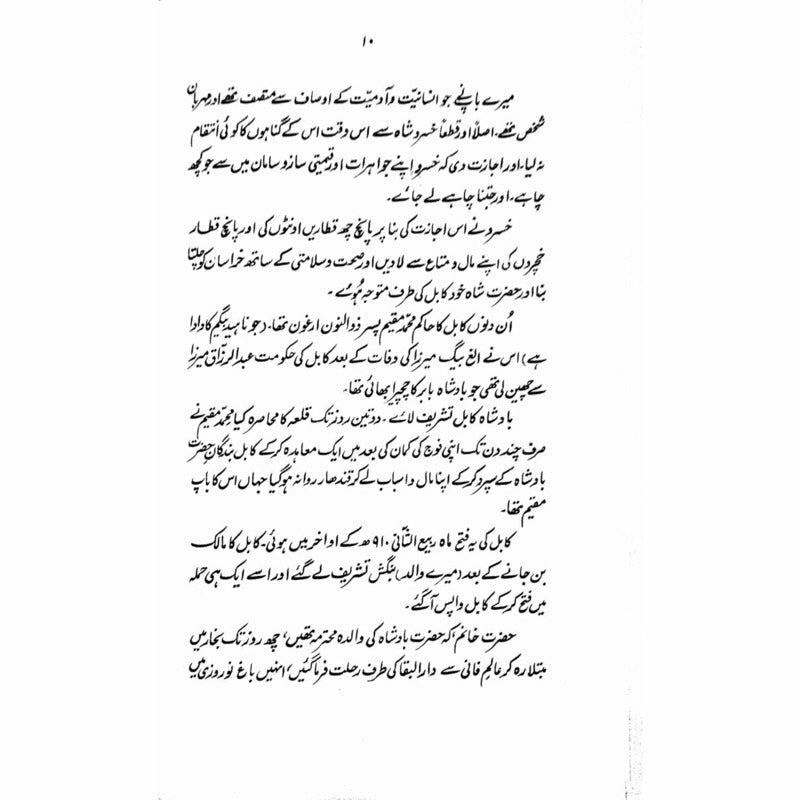 ۱۰
میرے باپ نے جو انسانیّت و آدمیّت کے اوصاف سے متصف تھے اور مہربان
شخص تھے۔ اصلاً اور قطعاً خسرو شاہ سے اس وقت اس کے گناہوں کا کوئی انتقام
نہ لیا۔ اور اجازت دی کہ خسرو اپنے جواہرات اور قیمتی ساز و سامان میں سے جو کچھ
چاہے۔ اور جتنا چاہے لے جائے۔
خسرو نے اس اجازت کی بنا پر پانچ چھ قطاریں اونٹوں کی اور پانچ قطار
خچروں کی اپنے مال و متاع سے لادیں اور صحت و سلامتی کے ساتھ خراسان کو چلتا
بنا اور حضرت شاہ خود کابل کی طرف متوجہ ہُوئے۔
اُن دنوں کابل کا حاکم محمّد مقیم پسر ذوالنون ارغون تھا۔ (جو ناہید بیگم کا دادا
ہے) اس نے الغ بیگ میرزا کی وفات کے بعد کابل کی حکومت عبدالرزّاق میرزا
سے چھین لی تھی جو بادشاہ بابر کا چچیرا بھائی تھا۔
بادشاہ کابل تشریف لائے۔ دو تین روز تک قلعہ کا محاصرہ کیا محمّد مقیم نے
صرف چند دن تک اپنی فوج کی کمان کی بعد میں ایک معاہدہ کر کے کابل بندگانِ حضرت
بادشاہ کے سپرد کر کے اپنا مال و اسباب لے کر قندھار روانہ ہو گیا جہاں اس کا باپ
مقیم تھا۔
کابل کی یہ فتح ماہ ربیع الثانی ۹۱۰ھ کے اواخر میں ہوئی۔ کابل کا مالک
بن جانے کے بعد (میرے والد) بنگش تشریف لے گئے اور اسے ایک ہی حملہ
میں فتح کر کے کابل واپس آ گئے۔
حضرت خانم، کہ حضرت بادشاہ کی والدہ محترمہ تھیں، چھ روز تک بخار میں
مبتلا رہ کر عالمِ فانی سے دار البقا کی طرف رحلت فرما گئیں، انہیں باغ نوروزی میں